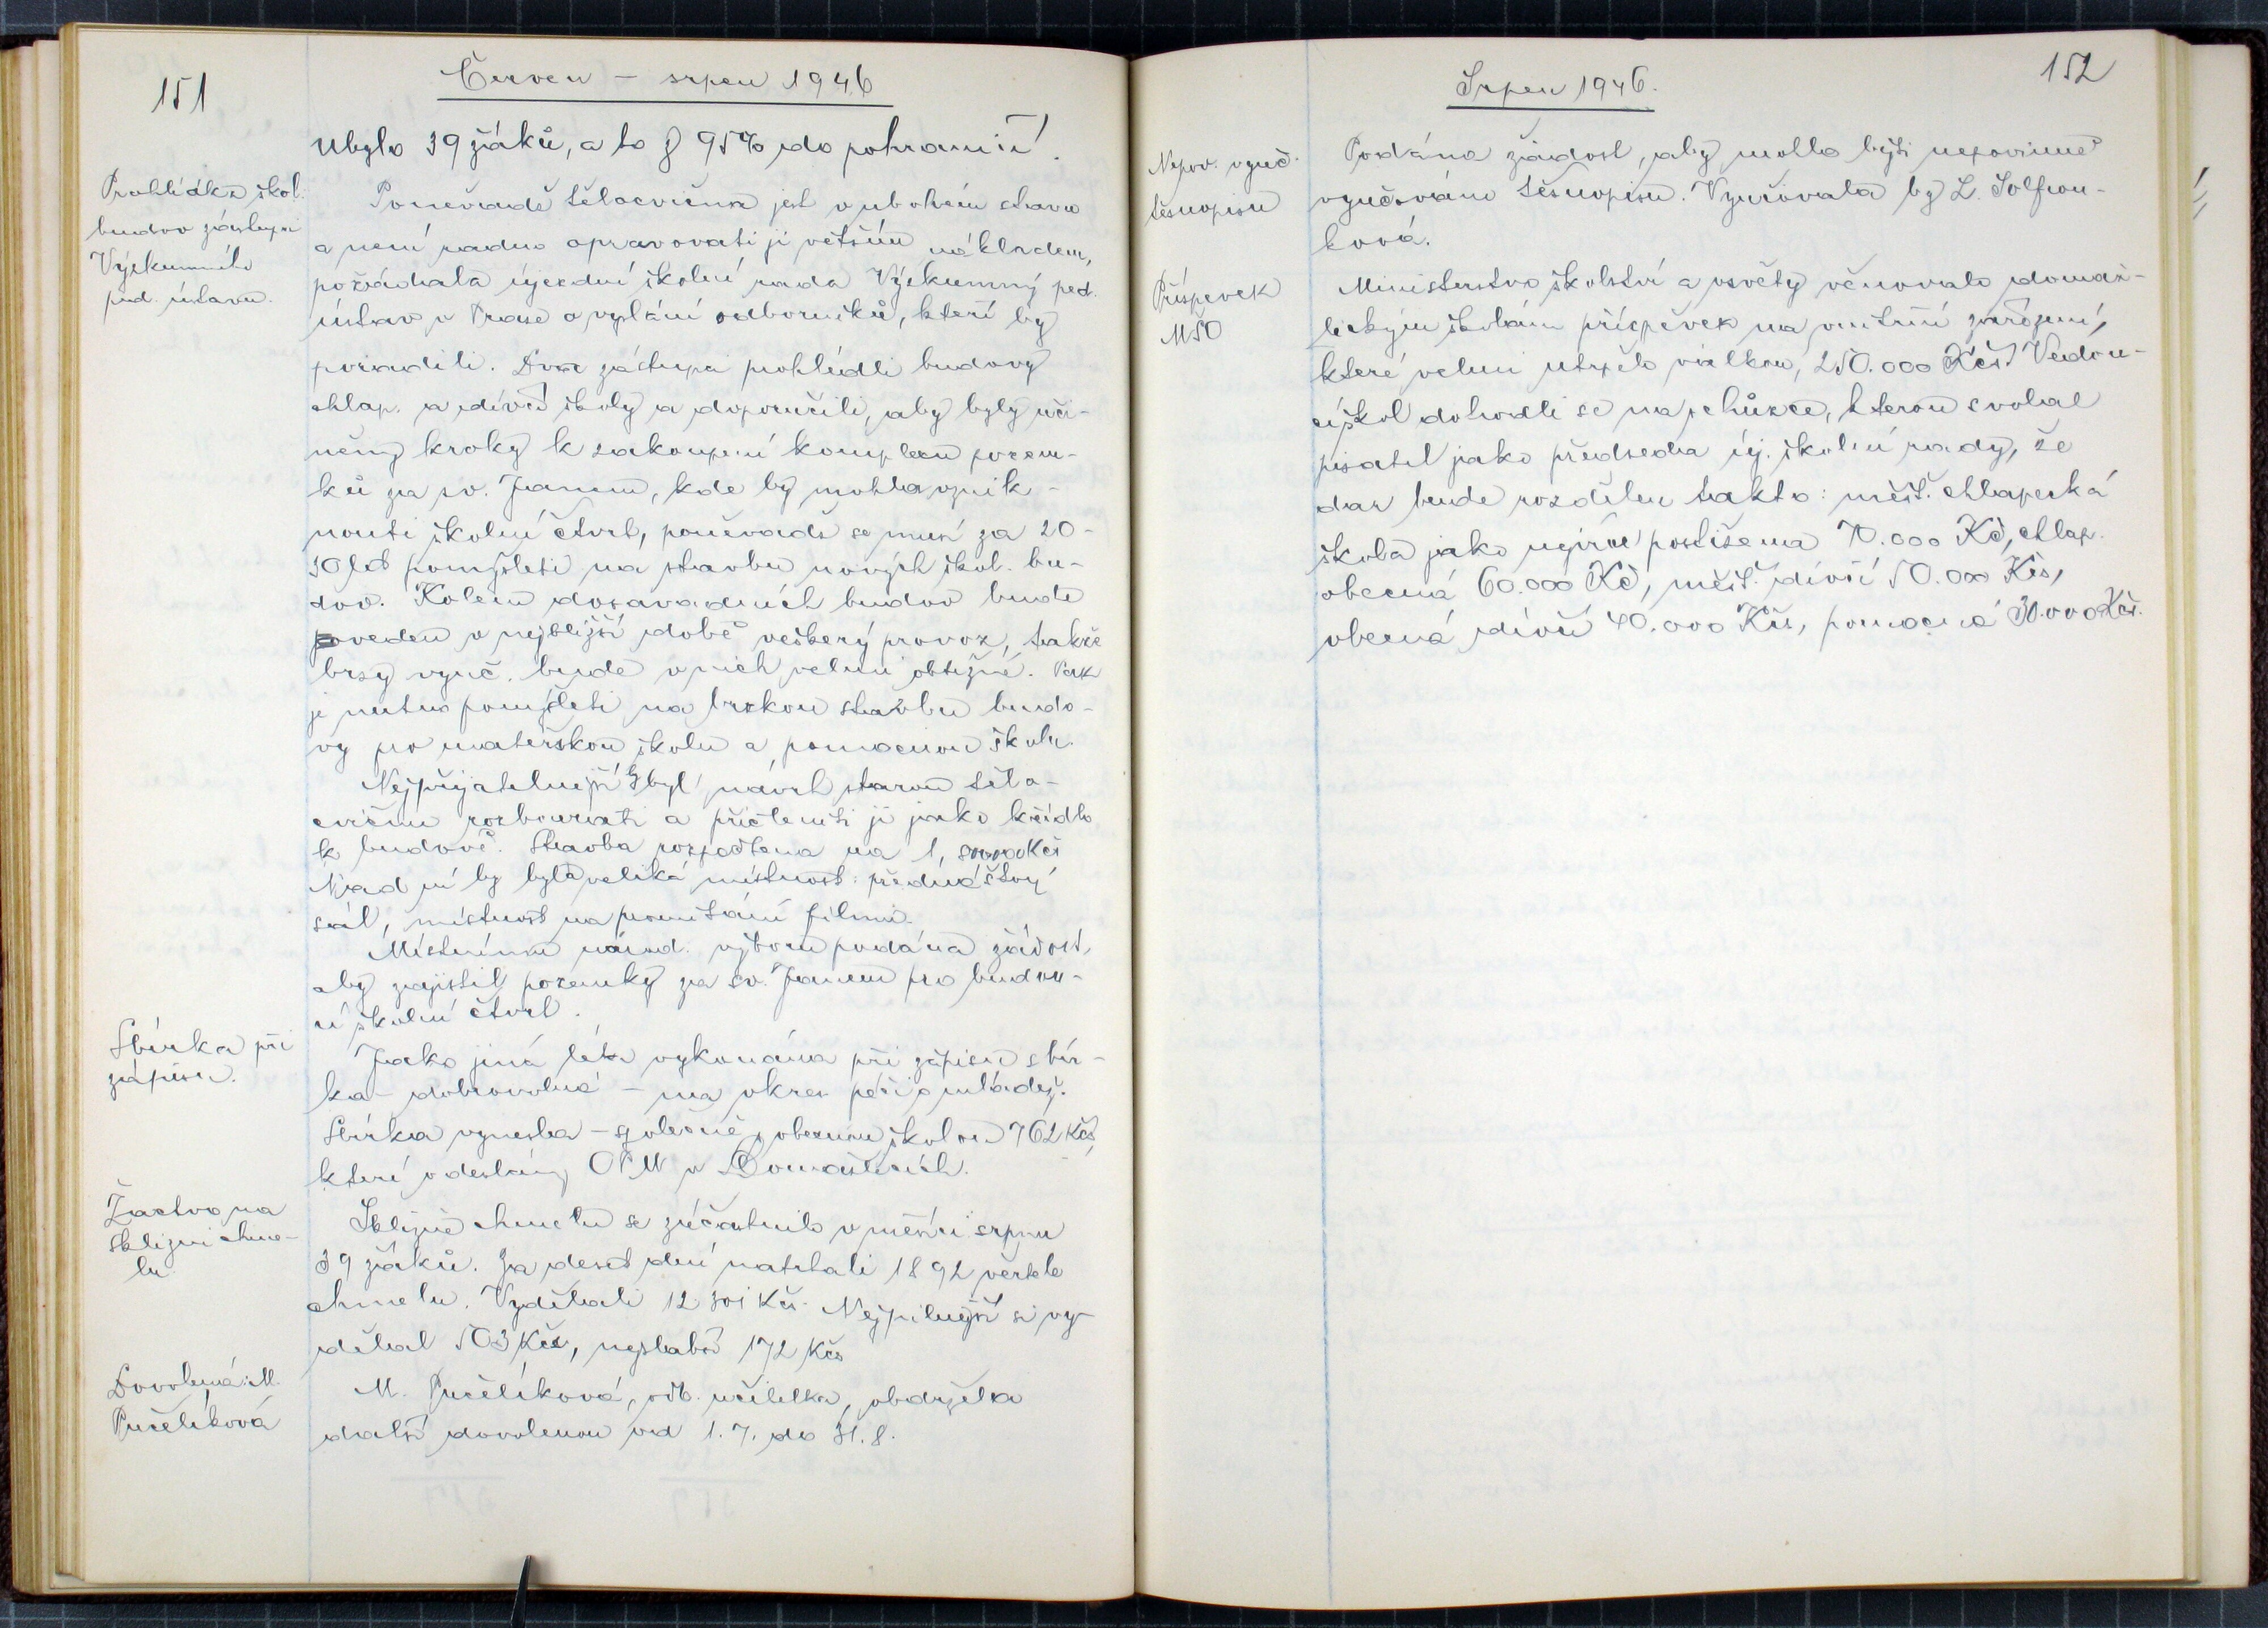 151
Červen – srpen 1946
Ubylo 39 žáků, a to z 95% do pohraničí.
Prohlídka škol.
budov zástupci
Výzkumného
ped. ústavu.
Poněvadž tělocvična jest v ubohém stavu
a není radno opravovati ji větším nákladem,
požádala újezdní školní rada Výzkumný ped.
ústav v Praze o vyslání odborníků, kteří by
poradili. Dva zástupci prohlédli budovy
chlap. a dívčí školy a doporučili, aby byly uči-
něny kroky k zakoupení komplexu pozem-
ků za sv. Janem, kde by mohla vznik-
nouti školní čtvrt, poněvadž se musí za 20-
30 let pomýšleti na stavbu nových škol. bu-
dov. Kolem dosavadních budov bude
sveden v nejbližší době veškerý provoz, takže
brzy vyuč. bude v nich velmi obtížné. Pak
je nutno pomýšleti na brzkou stavbu budo-
vy pro mateřskou školu a pomocnou školu.
Nejpřijatelnější by byl návrh starou tělo-
cvičnu rozbourati a přičleniti ji jako křídlo
k budově. Stavba rozpočtena na 1,500.000 Kčs
Nad ní by byla veliká místnost: přednáškový
sál, místnost na promítání filmů.
Místnímu národ. výboru podána žádost,
aby zajistil pozemky za sv. Janem pro budou-
cí školní čtvrt.
Sbírka při
zápisu.
Jako jiná léta vykonána při zápisu sbír-
ka – dobrovolná – na okres. péči o mládež.
Sbírka vynesla – společně s obecnou školou 762 Kčs,
které odeslány OPM v Domažlicích.
Žactvo na
sklizni chme-
lu.
Sklizně chmelu se zúčastnilo v měsíci srpnu
39 žáků. Za deset dní natrhali 1892 věrtele
chmelu. Vydělali 12 301 Kčs. Nejpilnější si vy-
dělal 503 Kčs, nejslabší 172 Kčs
Dovolená: M.
Pucelíková
M. Pucelíková, odb. učitelka, obdržela
další dovolenou od 1.7. do 31.8.
Srpen 1946.
152
Nepov. vyuč.
těsnopisu
Podána žádost, aby mohlo býti nepovinně
vyučováno těsnopisu. Vyučovala by L. Solfron-
ková.
Příspěvek
MŠO
Ministerstvo školství a osvěty věnovalo domaž-
lickým školám příspěvek na vnitřní zařízení,
které velmi utrpělo válkou, 250.000 Kčs. Vedou-
cí škol dohodli se na schůzce, kterou svolal
pisatel jako předseda új. školní rady, že
dar bude rozdělen takto: měšť. chlapecká
škola jako nejvíce postižena 70.000 Kč, chlap.
obecná 60.000 Kč, měšť. dívčí 50.000 Kčs,
obecná dívčí 40.000 Kčs, pomocná 30.000 Kčs.